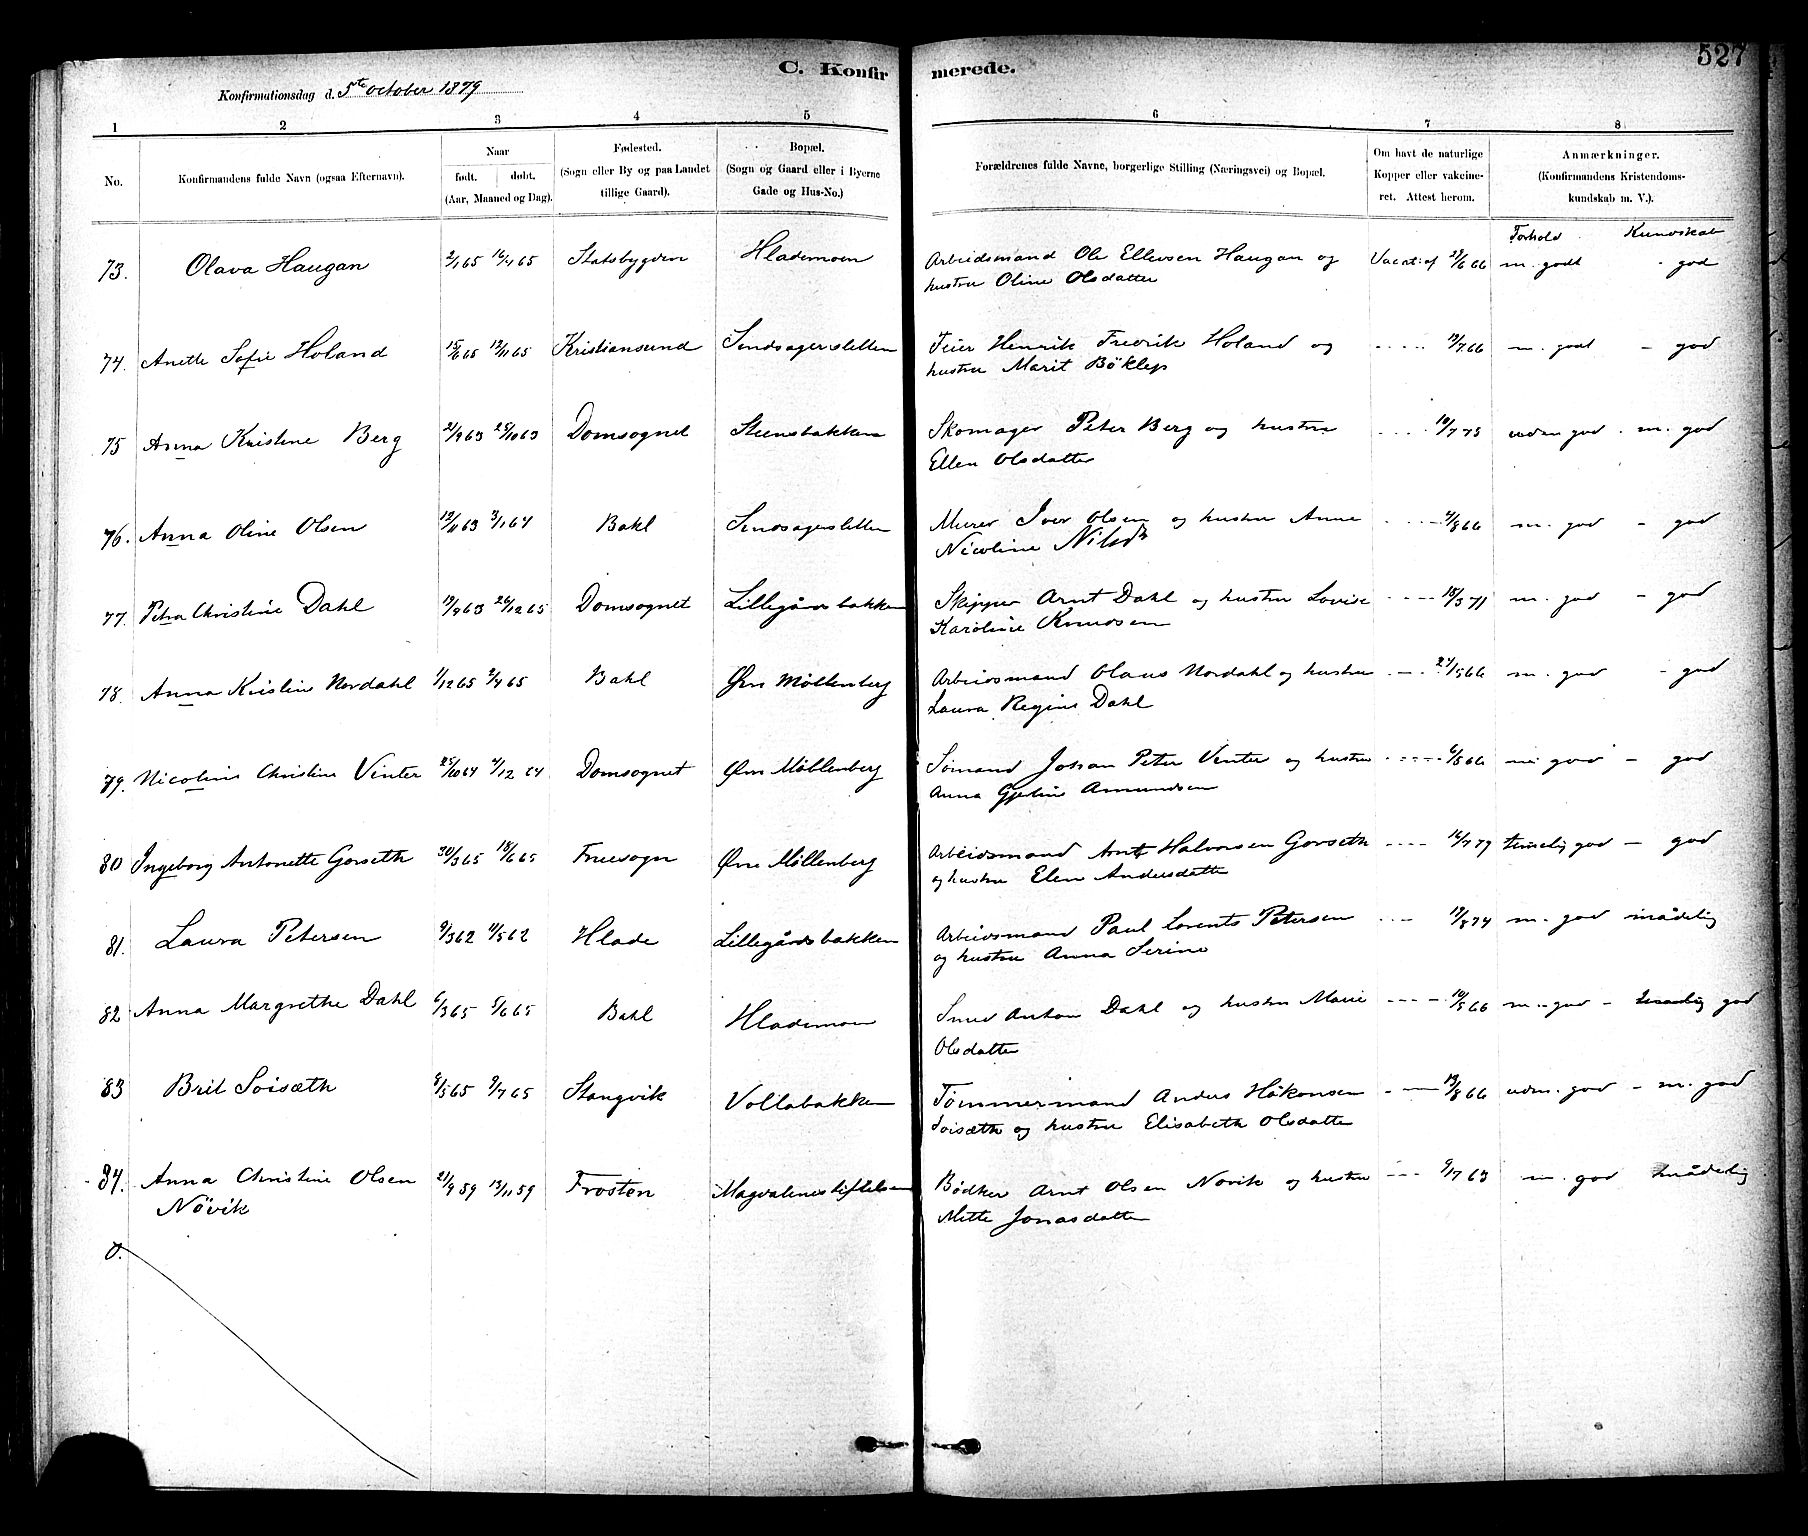 527
C. Konfirmerede.
Konfirmationsdag d. 5te october 1879
1 2 3 4 5 6 7 8
No.
Konfirmandens fulde Navn (ogsaa Efternavn).
Naar
født. døbt.
(Aar, Maaned og Dag).
Fødested.
(Sogn eller By og paa Landet
tillige Gaard).
Bopæl.
(Sogn og Gaard eller i Byerne
Gade og Hus-No.)
Forældrenes fulde Navne, borgerlige Stilling (Næringsvei) og Bopæl.
Om havt de naturlige
Kopper eller vakcine-
ret. Attest herom.
Anmærkninger.
(Konfirmandens Kristendoms-
kundskab m. V.).
Forhold Kundskab
73. Olava Haugan 2/1 65 16/4 65 Statsbygden Hlademoen Arbeidsmand Ole Ellevsen Haugan og Vacat: af 6 66 m. godt - god
hustru Oline Olsdatter
74. Anette Sofie Holand 15/6 65 12/11 65 Kristiansund Sendsagersletten Feier Henrik Fredrik Holand og 19/7 66 m. godt - god
hustru Marit Böklep
75 Anna Kristine Berg 21/9 63 25/10 63 Domsognet Steensbakken Skomager Peter Berg og hustru 10/7 75 udm god - m. god
Ellen Olsdatter
76. Anna Oline Olsen 12/11 63 3/1 64 Bakl Sendsagersletten Murer Iver Olsen og hustru Anne 8 66 m. god - god
Nicoline Nilsdr
77. Petra Christine Dahl 19/9 63 26/12 65 Domsognet Lillegårdsbakken Skipper Arnt Dahl og hustru Lovise 18/3 71 m. god - god
Karoline Knudsen
78. Anna Kristine Nordahl 1/12 65 2/4 65 Bakl Øvre Möllenberg Arbeidsmand Olaus Nordahl og hustru 24/5 66 m. god - god
Laura Regine Dahl
79. Nicoline Christine Vinter 25/10 64 4/12 64 Domsognet Øvre Möllenberg Sömand Johan Peter Vinter og hustru 6/8 66 m god - god
Anna Gjertine Amundsen
80 Ingeborg Antonette Gorseth 30/3 65 18/6 65 Fruesogn Øvre Möllenberg Arbeidsmand Arnt Halvorsen Gorseth 16/7 79 temelig god - god
og hustru Elen Andersdatter
81. Laura Petersen 9/3 62 11/5 62 Hlade Lillegårdsbakken Arbeidsmand Paul Lorents Petersen 19/8 74 m. god mådelig
og hustru Anna Serine
82 Anna Margrethe Dahl 6/3 65 5/6 65 Bakl Hlademoen Smed Anton Dahl og hustru Marie 10/5 66 m. god - god
Olsdatter
83 Brit Soisæth 8/5 65 9/7 65 Stangvik Vollabakken Tömmermand Anders Håkonsen 13/8 66 udm. god - m. god
Soisæth og hustru Elisabeth Olsdatter
84. Anna Christine Olsen 21/9 59 13/11 59 Frosten Magdalenestiftelsen Bödker Arnt Olsen Növik og hustru 9/7 63 m. god mådelig
Növik Mette Jonasdatter